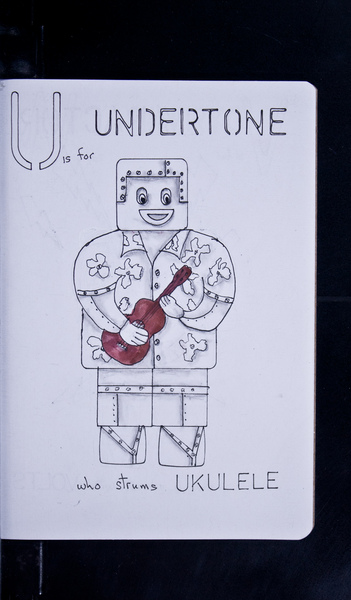 U UNDERTONE
is for
who strums UKULELE